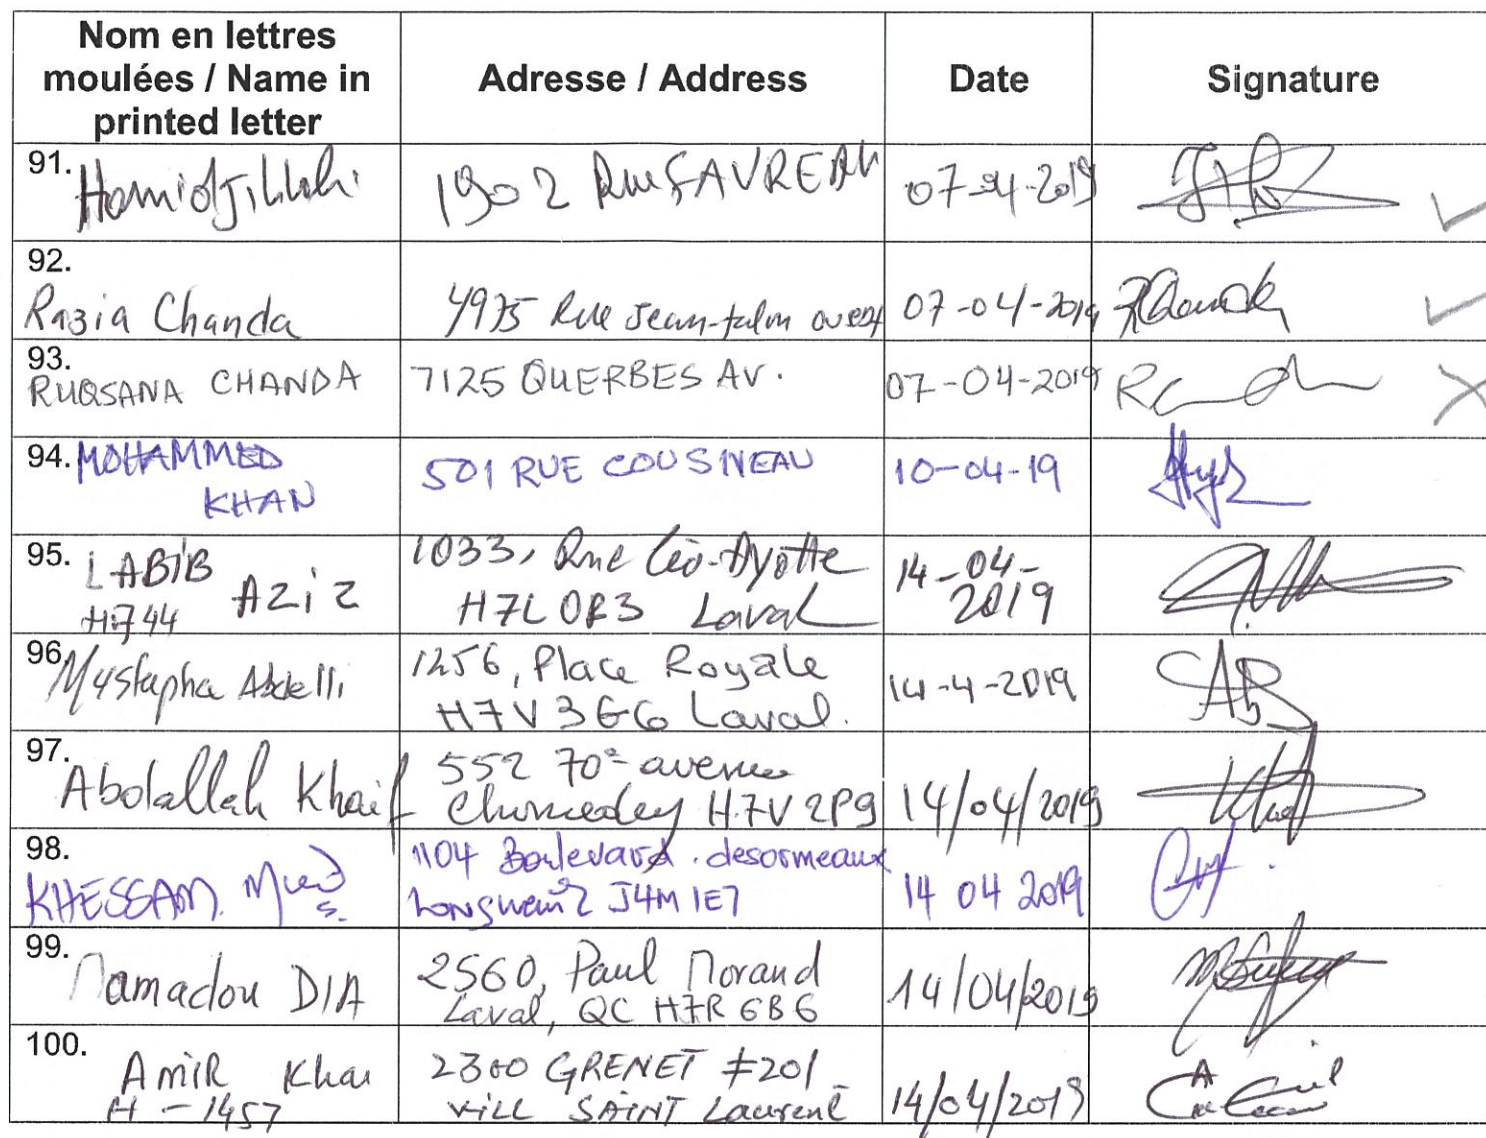 Nom en lettres
moulées / Name in
printed letter
Adresse / Address
Date
Signature
91.
Hamid Jillahi
1902 Rue FAVREAU
07-04-2019
92.
Razia Chanda
4975 Rue Jean-talon ouest
07-04-2019
93.
RUQSANA CHANDA
7125 QUERBES AV.
07-04-2019
94. MOHAMMED
KHAN
501 RUE COUSINEAU
10-04-19
95. LABIB AZIZ
H744
1033, Rue Léo-Ayotte
H7L 0R3 Laval
14-04-
2019
96. Mustapha Abdelli
1256, Place Royale
H7V 3G6 Laval.
14-4-2019
97.
Abdallah Khaif
552 70e avenue
Chomedey H7V 2P9
14/04/2019
98.
KHESSAM
1104 Boulevard desormeaux
Longueuil J4M 1E7
14 04 2019
99.
Mamadou DIA
2560, Paul Morand
Laval, QC H7R 6B6
14/04/2019
100.
AMIR Khan
H-1457
2300 GRENET #201
VILL SAINT Laurent
14/04/2019